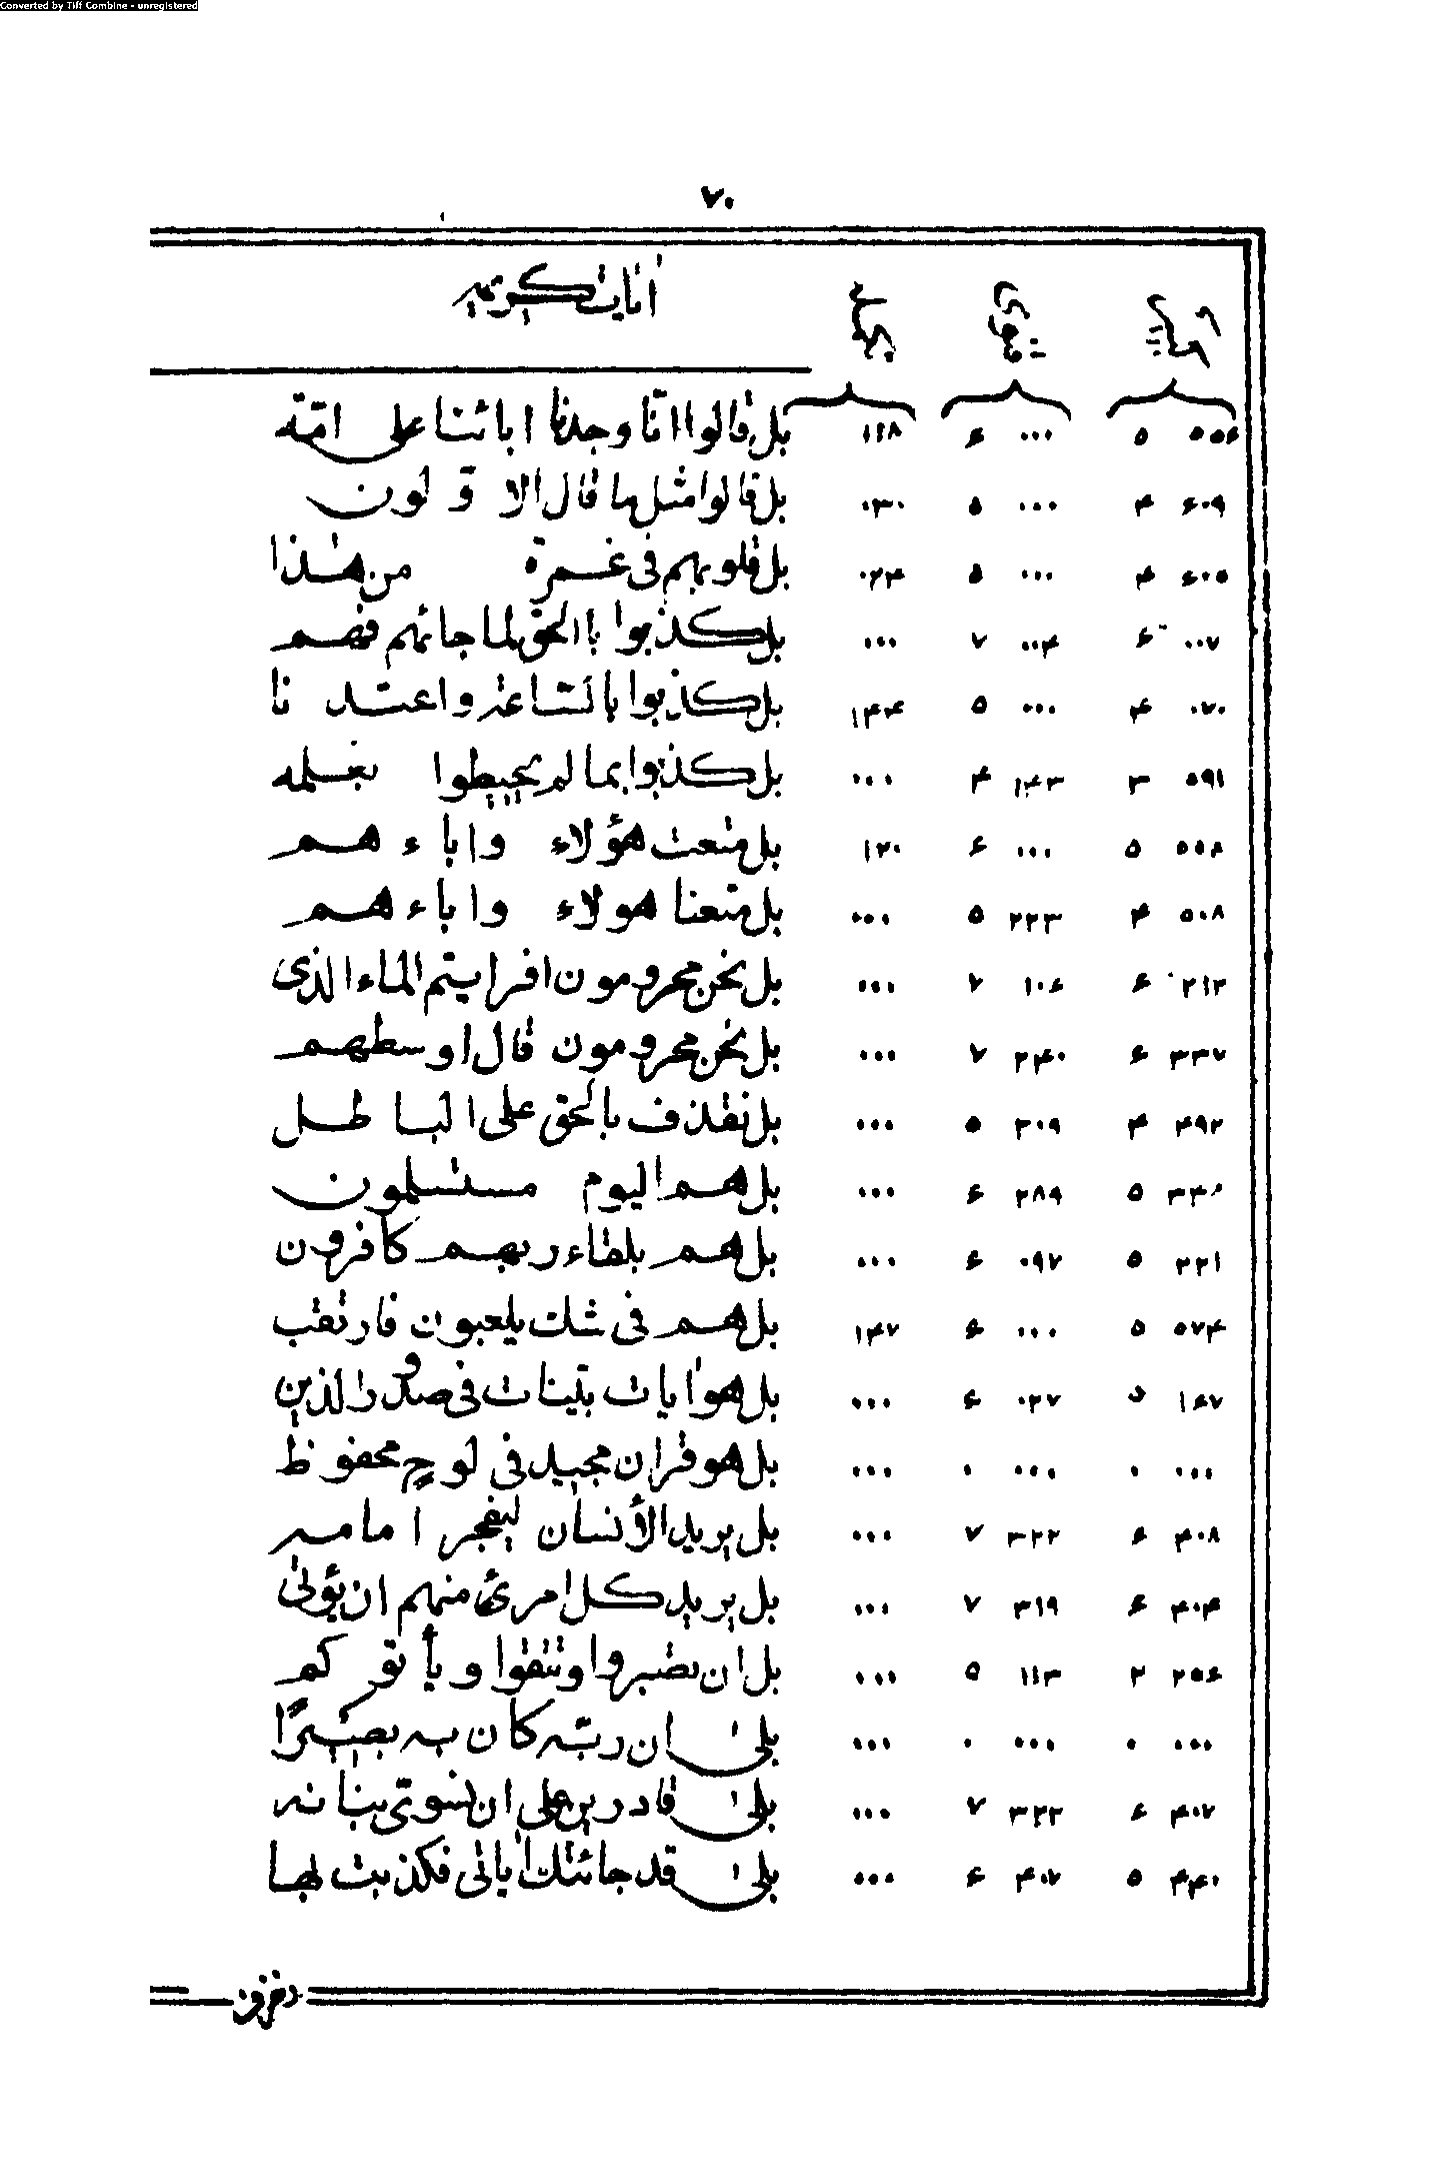 Converted by Tiff Combine - unregistered
٧٠
۵۵۶ ۵ ۰۰۰ ۶ ۱۱۸ بل قالوا انّا وجدنا ابائنا على امّة
۶۰۹ ۴ ۰۰۰ ۵ ۰۳۰ بل قالوا مثل ما قال الا وّ لون
۶۰۵ ۴ ۰۰۰ ۵ ۰۲۴ بل قلوبهم فى غمرة من هٰذا
۰۰۷ ۶ ۰۰۴ ۷ ۰۰۰ بل كذبوا باالحق لما جائهم فهم
۰۷۰ ۴ ۰۰۰ ۵ ۱۴۴ بل كذبوا بالسّاعة واعتد نا
۵۹۱ ۳ ۱۴۳ ۴ ۰۰۰ بل كذبوا بما لم يحيطوا بعلمه
۵۵۸ ۵ ۰۰۰ ۶ ۱۲۰ بل متعت هؤلاء واباء هم
۵۰۸ ۴ ۲۲۳ ۵ ۰۰۰ بل متعنا هولاء واباء هم
۲۱۲ ۶ ۱۰۶ ۷ ۰۰۰ بل نحن محرومون افرايتم الماء الذى
۳۳۷ ۶ ۲۴۰ ۷ ۰۰۰ بل نحن محرومون قال اوسطهم
۴۹۲ ۴ ۲۰۹ ۵ ۰۰۰ بل نقذف بالحق على البا طل
۵ ۲۸۹ ۶ ۰۰۰ بل هم اليوم مستسلمون
۲۲۱ ۵ ۰۹۷ ۶ ۰۰۰ بل هم بلقاء ربهم كافرون
۵۷۴ ۵ ۰۰۰ ۶ ۱۴۷ بل هم فى شك يلعبون فارتقب
۱۶۷ ۵ ۰۲۷ ۶ ۰۰۰ بل هو ايات بيّنات فى صدور الذين
۰۰۰ ۰ ۰۰۰ ۰ ۰۰۰ بل هو قران مجيد فى لوح محفوظ
۴۰۸ ۶ ۳۲۲ ۷ ۰۰۰ بل يريد الأنسان ليفجر ا مامه
۴۰۴ ۶ ۳۱۹ ۷ ۰۰۰ بل يريد كل امرئ منهم ان يؤتى
۲۵۶ ۲ ۱۱۳ ۵ ۰۰۰ بل ان تصبروا وتتقوا و يأتو كم
۰۰۰ ۰ ۰۰۰ ۰ ۰۰۰ بلىٰ ان ربّه كان به بصيرًا
۴۰۷ ۶ ۳۲۲ ۷ ۰۰۰ بلىٰ قادرين على ان نسوّى بنانه
۴۴۰ ۵ ۴۰۷ ۶ ۰۰۰ بلىٰ قد جائتك اٰياتى فكذبت بها